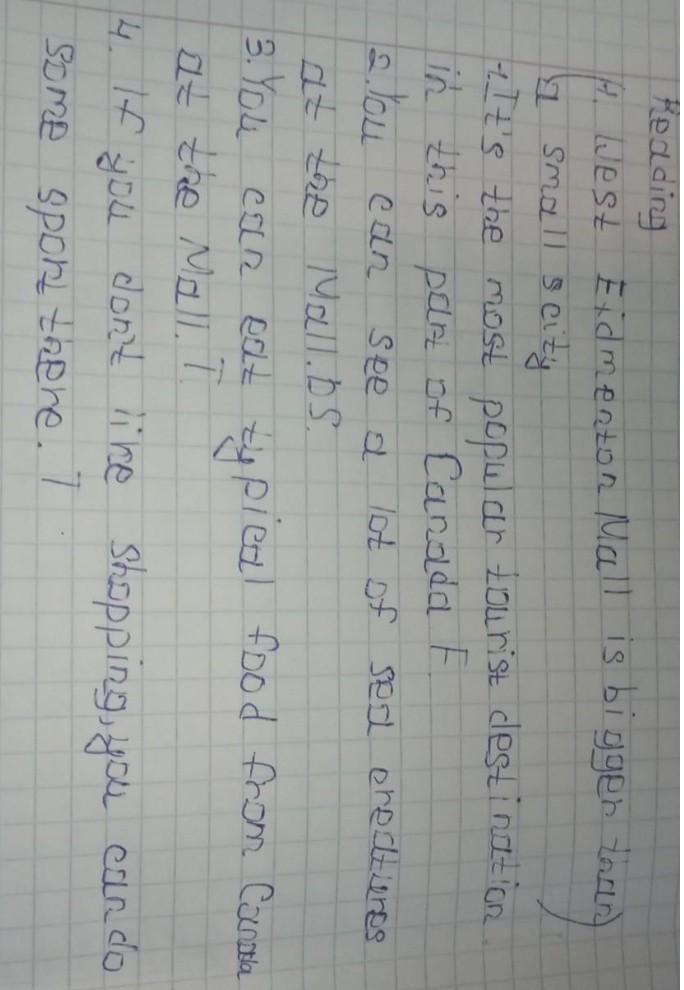 Reading
(4. West Eidmenton Mall is bigger than
a small scity)
1. It's the most popular tourist destination
in this part of Canada F.
2. You can see a lot of sea creatures
at the Mall. DS.
3. You can eat typical food from Canada
at the Mall. T.
4. If you don't like shopping, you can do
some sport there. T